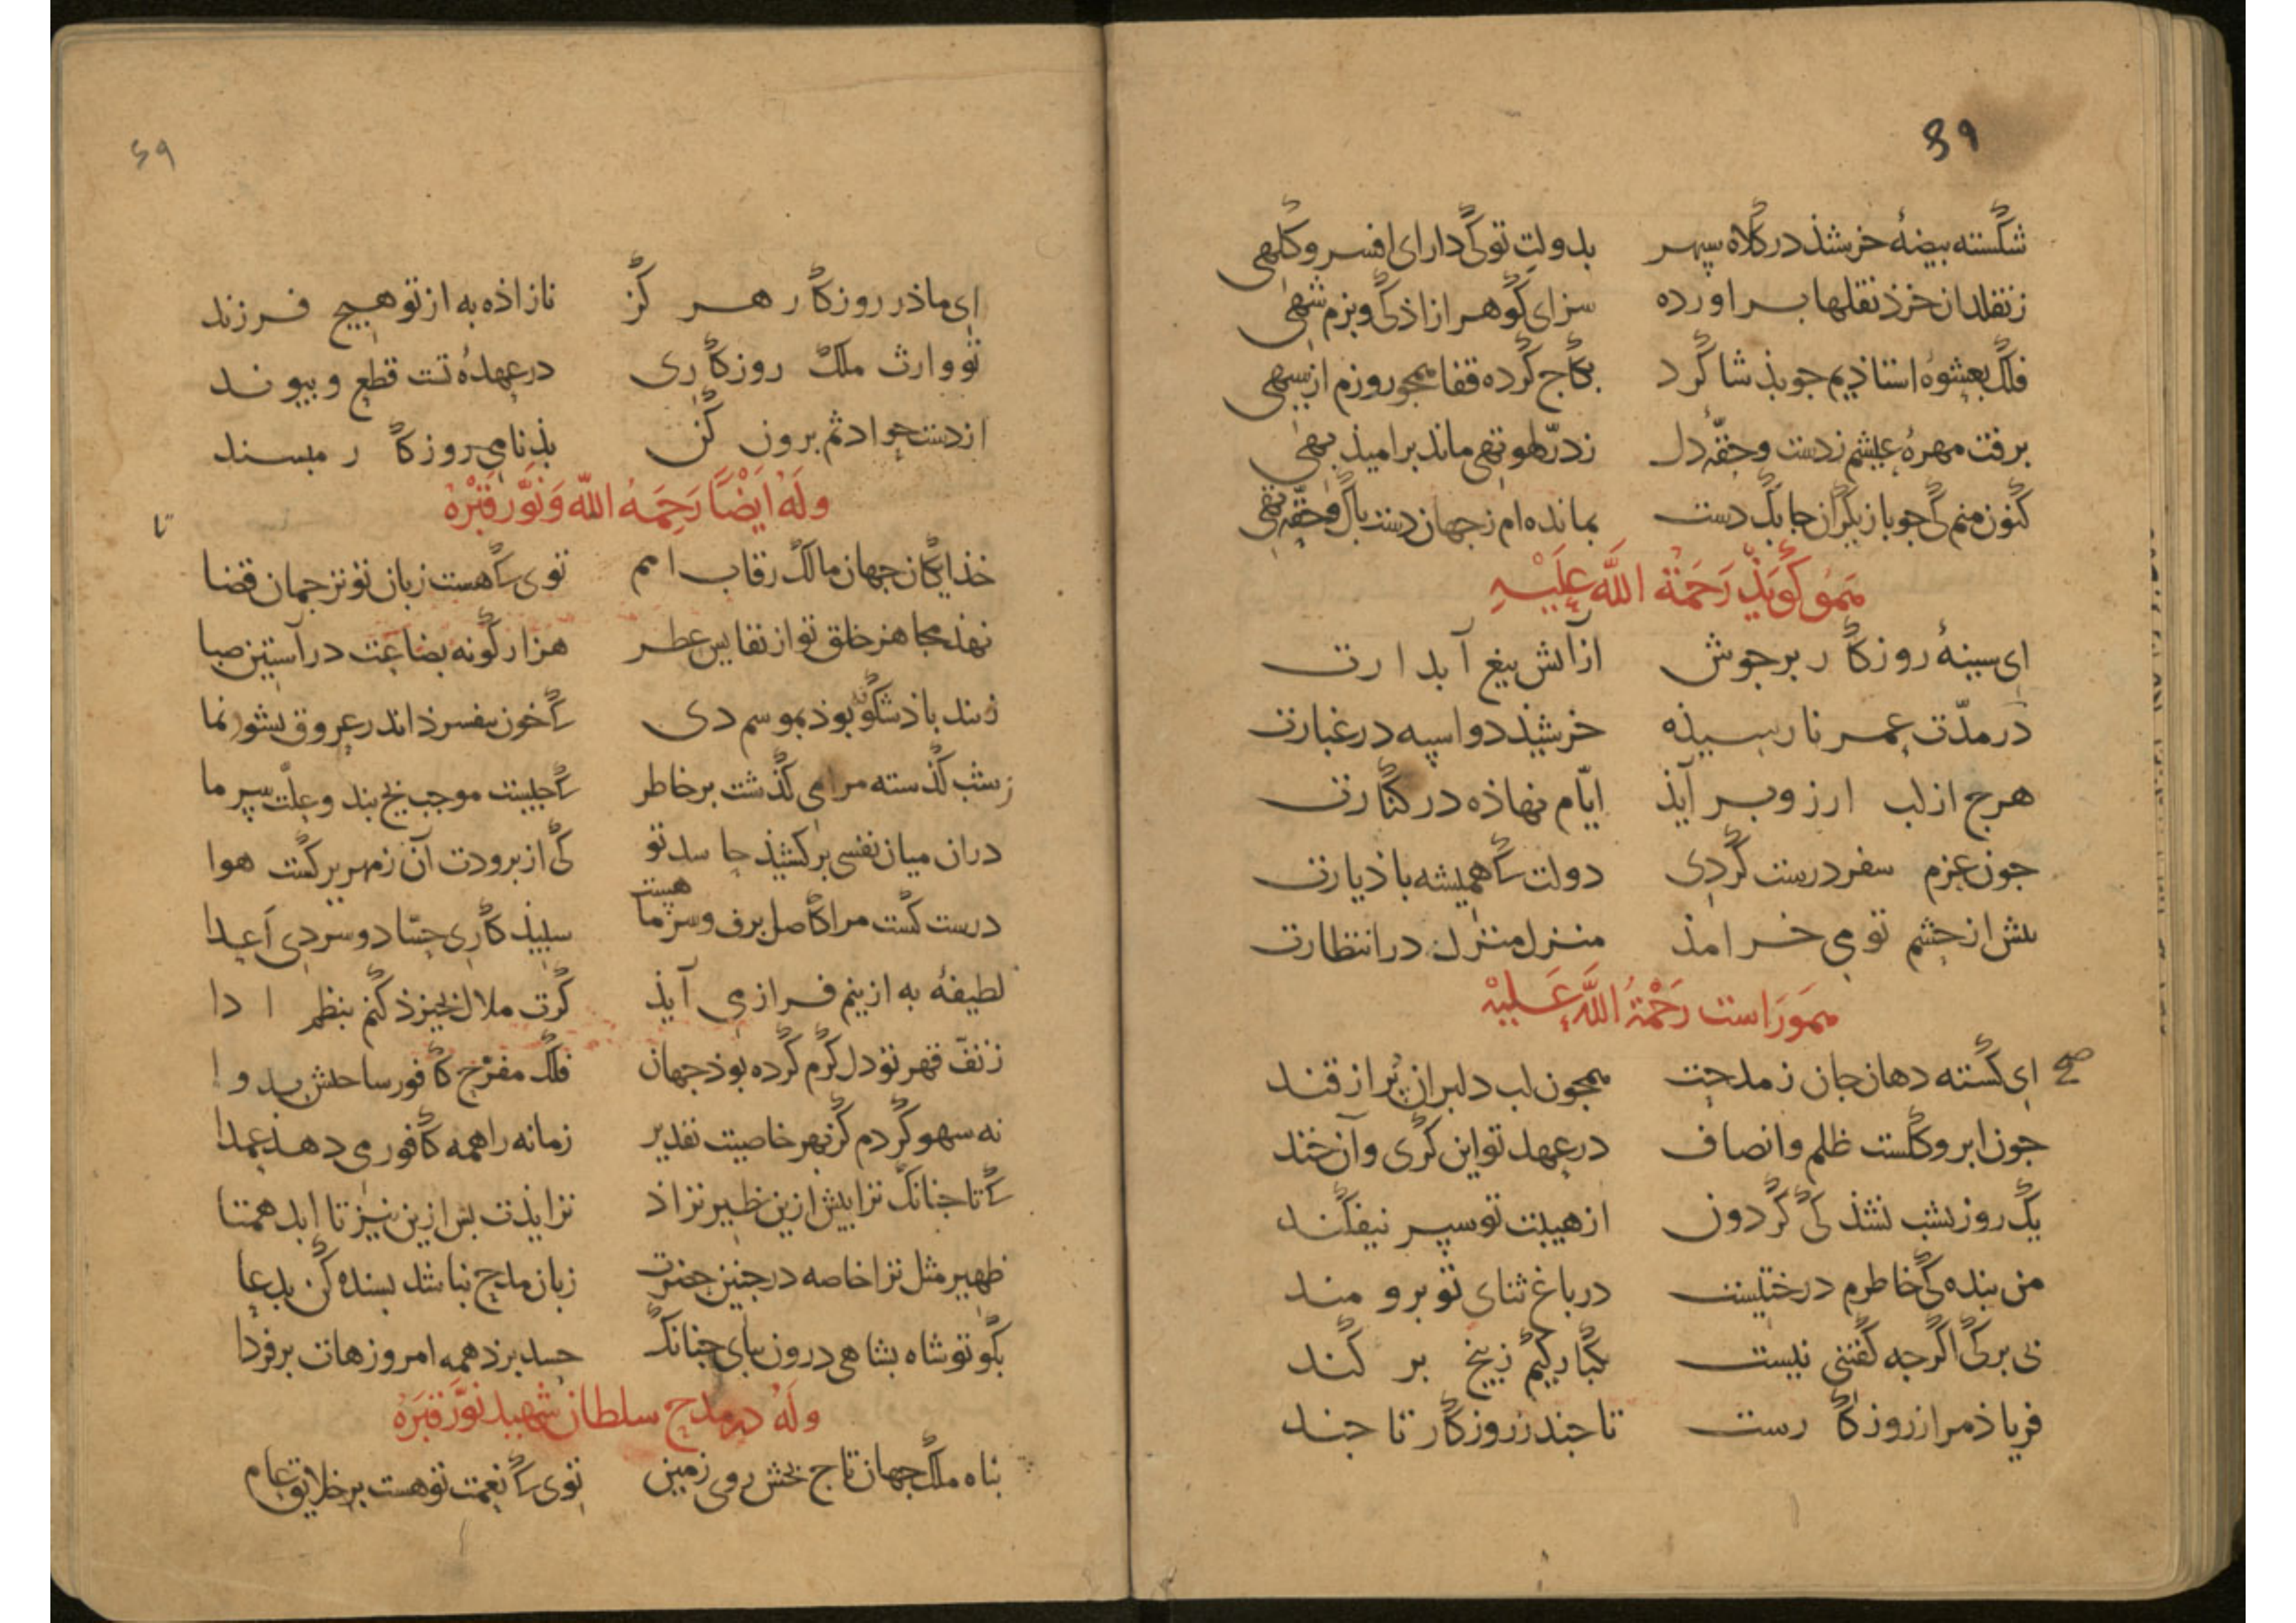 ۶۹
شکسته بیضهٔ خرشذ در کلاه سپهر بدولت تو کی دارای افسر و کلهی
ز نقلدان خرذ نقلها براورده سزای کوهر ازاذکی و بزم شهی
فلک بعشوه استاذیم جو بذ شاکرد بکاج کرده قفا همجو روزم از سیهی
برفت مهرهٔ عیشم ز دست و حقّه دل ز درّ لهو تهی ماند بر امیذ بهی
کنون منم کی جو بازیکران جابک دست بمانده ام ز جهان دست باک و حقّه تهی
هم او کویذ رحمة الله علیه
ای سینهٔ روزکار بر جوش از آتش تیغ آبدارت
در مدّت عمر نارسیذه خرشیذ دواسپه در غبارت
هرج از لب ارزو بر آیذ ایّام نهاذه در کنارت
جون عزم سفر درست کردی دولت که همیشه باذ یارت
بیش از حشم تو می خرامذ منزل منزل در انتظارت
هم او راست رحمة الله علیه
ای کشته دهان جان ز مدحت همجون لب دلبران پر از قند
جون ابر و کلست ظلم و انصاف در عهد تو این کری و آن خند
یک روز بشب نشذ کی کردون از هیبت تو سپر نیفکند
من بنده کی خاطرم درختیست در باغ ثنای تو برومند
بی برکی اکرجه کفتنی نیست یکبارکیم ز بیخ بر کند
فریاذ مرا ز روزکار رست تا جند ز روزکار تا جند
۶۹
ای ماذر روزکار هر کز نازاذه به از تو هیج فرزند
تو وارث ملک روزکاری در عهدهٔ تست قطع و بیوند
از دست حوادثم برون کن بذنامی روزکار مبسند
وله ایضًا رحمه الله و نوّر قبره
خذایکان جهان مالک رقاب امم توی که هست زبان تو ترجمان قضا
نهذ مجاهز خلق تو از نفایس عطر هزار کونه بضاعت در آستین صبا
زند باذ شکوه بوذ بموسم دی که خون بفسرذ اندر عروق نشو و نما
ز شب کذسته مرا می کذشت بر خاطر که جیست موجب یخ بند و علّت سرما
دران میان نفسی بر کشیذ حاسد تو کی از برودت آن زمهریر کشت هوا
درست کشت مرا کاصل برف و سرما هست سبیذ کاری حسّاد و سردی اعدا
لطیفهٔ به ازینم فراز می آیذ کرت ملال نخیزذ کنم بنظم ادا
ز تفّ قهر تو دل کرم کرده بوذ جهان فلک مفرّح کافور ساختش بدوا
نه سهو کردم کز بهر خاصیت تقدیر زمانه را همه کافور می دهذ عمدا
که تا جنانک ترا بیش ازین نظیر نزاذ نزایذت بس ازین نیز تا ابد همتا
ظهیر مثل ترا خاصه در جنین حضرت زبان مدح نباشد بسنده کن بدعا
بکو تو شاه بشاهی درون ببای جنانک حسد برذ همه امروزهات بر فردا
وله در مدح سلطان شهید نوّر قبره
بناه ملک جهان تاج بخش روی زمین توی که نعمت تو هست بر خلایق عام